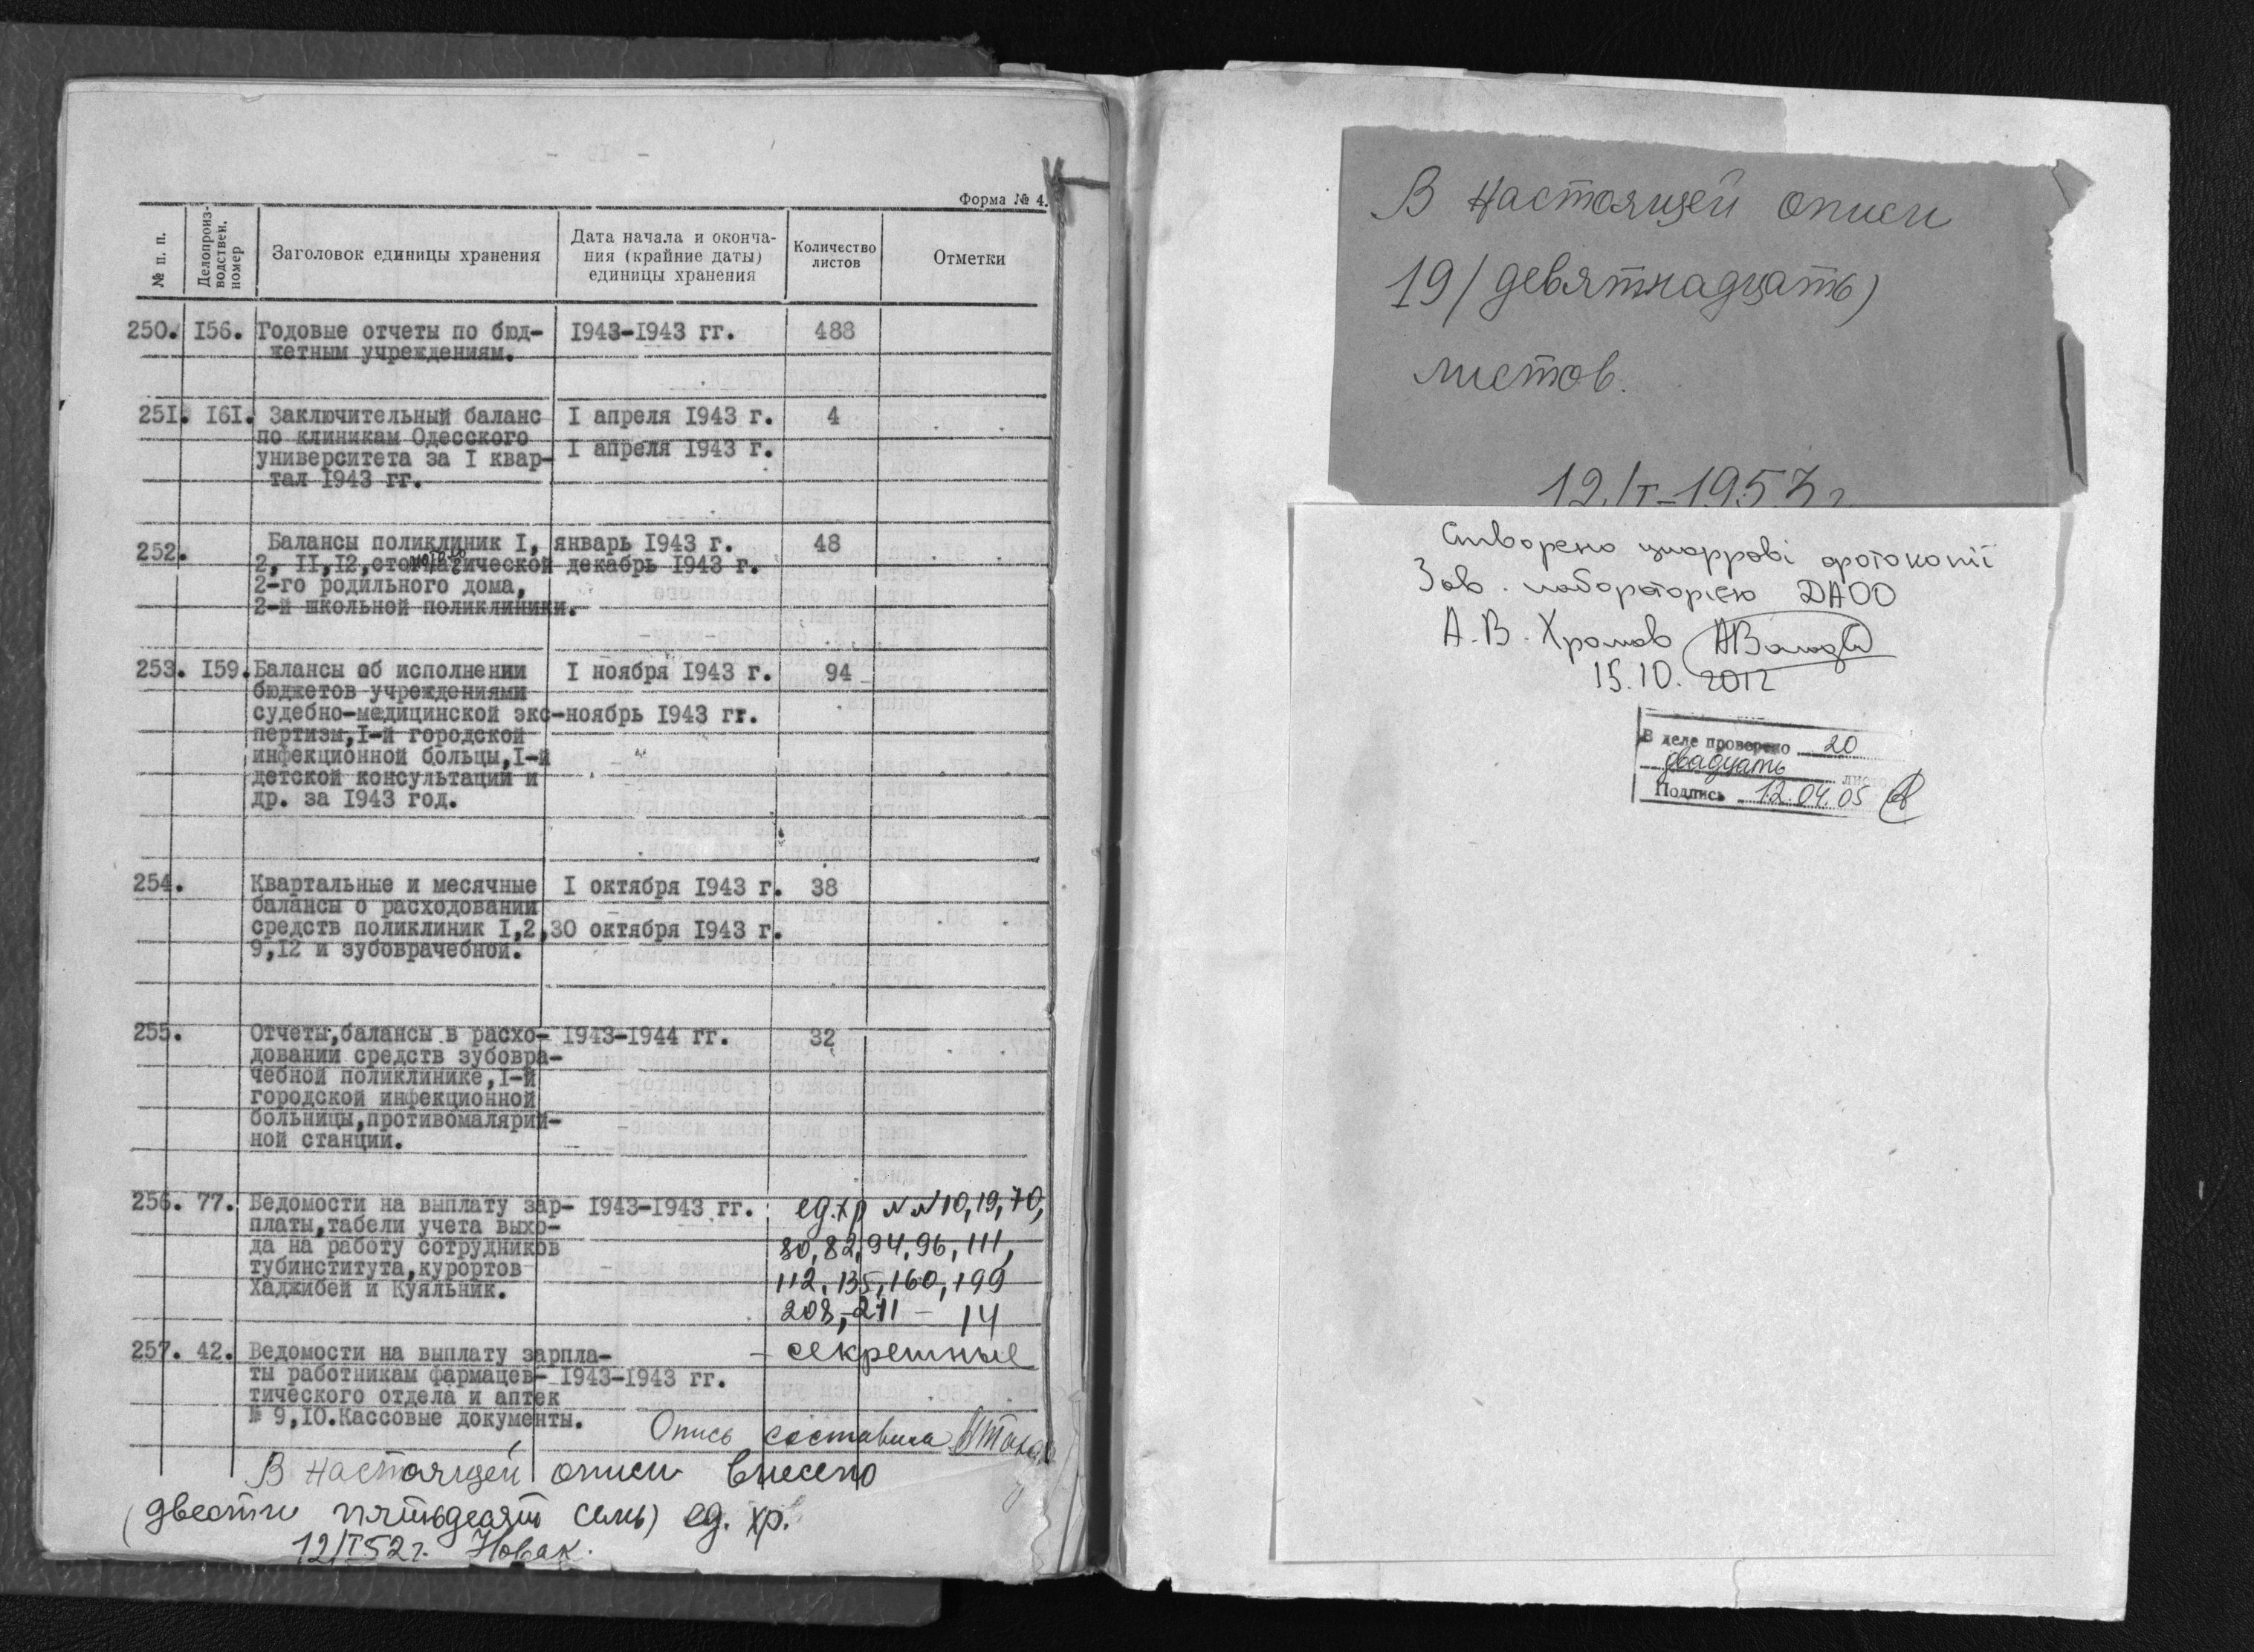 Форма № 4.
№ п. п.
Делопроиз-
водствен.
номер
Заголовок единицы хранения
Дата начала и оконча-
ния (крайние даты)
единицы хранения
Количество
листов
Отметки
250. I56. Годовые отчеты по бюд- I943-I943 гг. 488
жетным учреждениям.
25I. I6I. Заключительный баланс I апреля I943 г. 4
по клиникам Одесского
университета за I квар- I апреля I943 г.
тал I943 гг.
252. Балансы поликлиник I, январь I943 г. 48
2, II,I2,стоматологической декабрь I943 г.
2-го родильного дома,
2-й школьной поликлиники.
253. I59. Балансы об исполнении I ноября I943 г. 94
бюджетов учреждениями
судебно-медицинской экс-ноябрь I943 гг.
пертизы,I-й городской
инфекционной больцы,I-й
детской консультации и
др. за I943 год.
254. Квартальные и месячные I октября I943 г. 38
балансы о расходовании
средств поликлиник I,2,30 октября I943 г.
9,I2 и зубоврачебной.
255. Отчеты,балансы в расхо- I943-I944 гг. 32
довании средств зубовра-
чебной поликлинике,I-й
городской инфекционной
больницы,противомалярий-
ной станции.
256. 77. Ведомости на выплату зар- I943-I943 гг. ед.хр NN 10,19,70,
платы,табели учета выхо-
да на работу сотрудников 80,82,94,96,111,
тубинститута,курортов 112,135,160,199
Хаджибей и Куяльник.
208,-211 - 14
257. 42. Ведомости на выплату зарпла- - секретные
ты работникам фармацев- I943-I943 гг.
тического отдела и аптек
№ 9,I0.Кассовые документы.
Опись составила
В настоящей описи внесено
(двести пятьдесят семь) ед. хр.
12/I 52 г. Новак.
В настоящей описи
19/девятнадцать)
листов.
12/I-1953 г
Створено цифрові фотокопії
Зав. лабораторією ДАОО
А.В. Хромов
15.10. 2012
В деле проверено 20
двадцать листо
Подпись 12.04.05